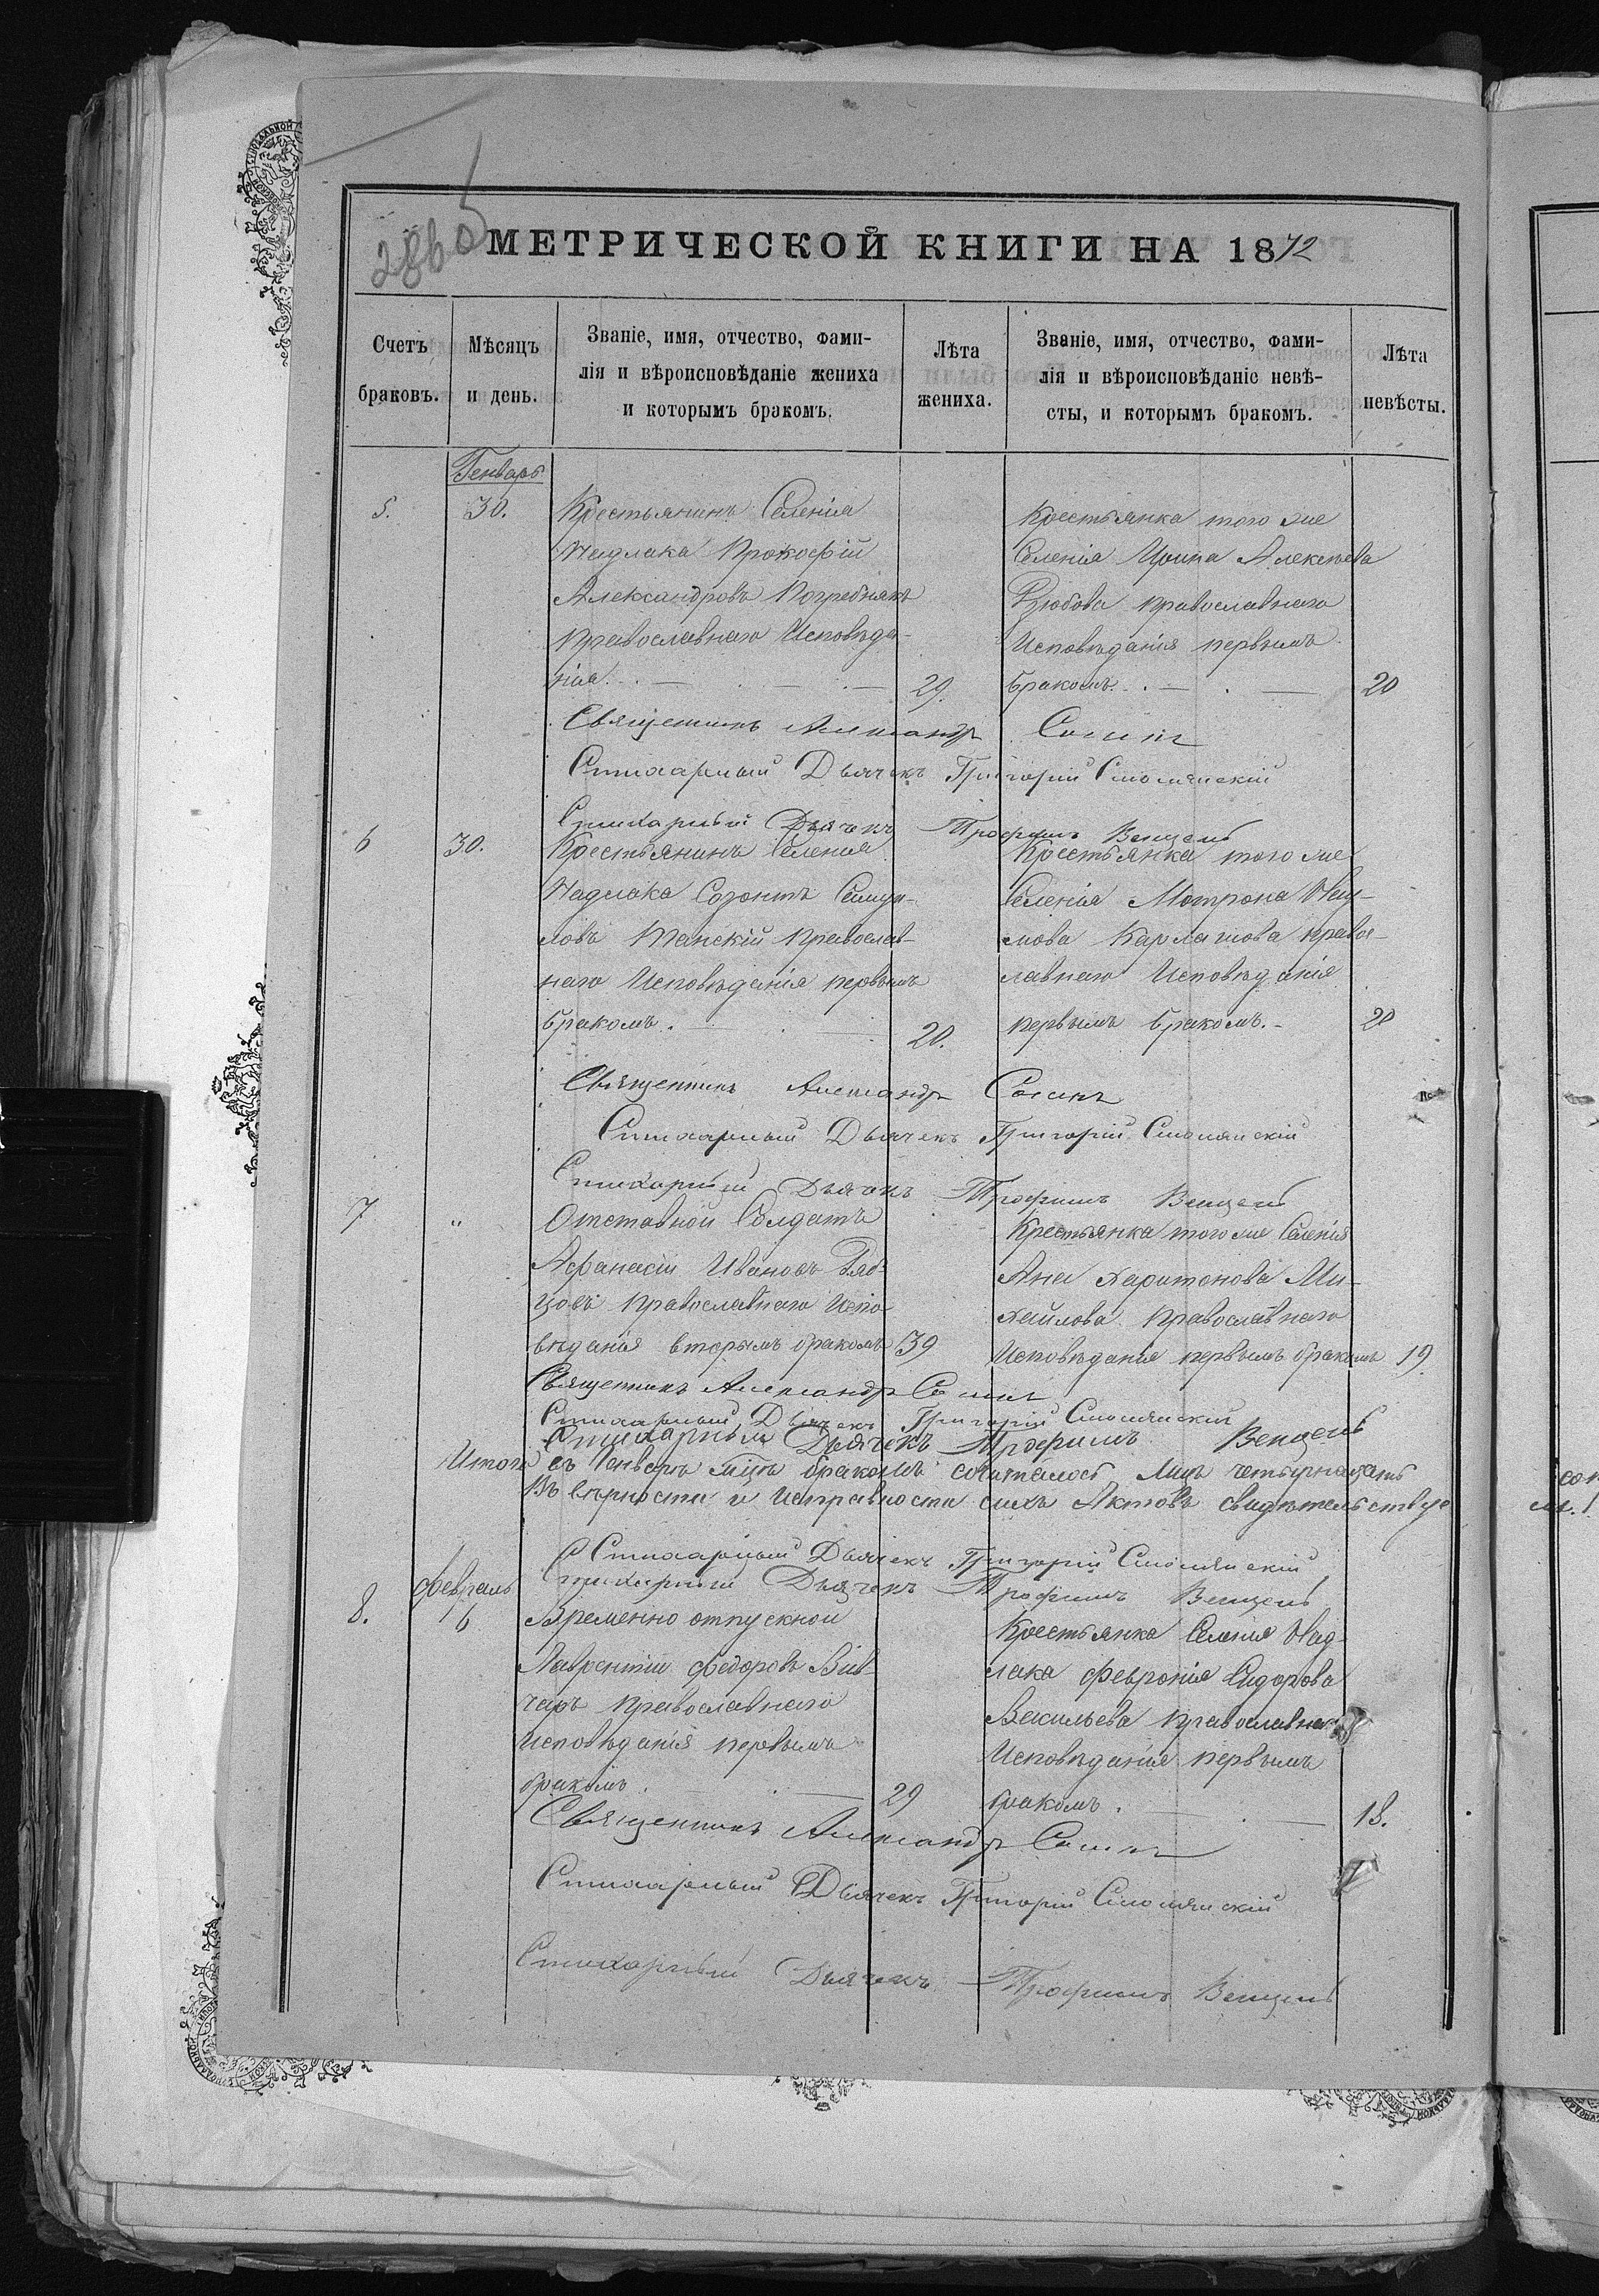 286
МЕТРИЧЕСКОЙ КНИГИ НА 1872
Счетъ браковъ.
Мѣсяцъ и день.
Званіе, имя, отчество, фами-
лія и вѣроисповѣданіе жениха
и которымъ бракомъ.
Лѣта жениха.
Званіе, имя, отчество, фами-
лія и вѣроисповѣданіе невѣ-
сты, и которымъ бракомъ.
Лѣта невѣсты.
Генварь
5. 30.
Крестьянинъ Селенія
Надлака Прокофій
Александровъ Погребнякъ
православнаго Исповѣда-
нія. 29.
Крестьянка того же
Селенія Ирина Алексѣева
православнаго
Исповѣданія первымъ
бракомъ. 20
Священникъ Александръ
Стихарный Дьячекъ Григорій Смолянскій
Стихарный Дьячекъ Трофимъ Венцель
6 30.
Крестьянинъ Селенія
Надлака Созонтъ Самуи-
ловъ православ-
наго Исповѣданія первымъ
бракомъ. 20.
Крестьянка того же
Селенія Мотрона Нау-
мова Карлашова право-
славнаго Исповѣданія
первымъ бракомъ. 20
Священникъ Александръ
Стихарный Дьячекъ Григорій Смолянскій
Стихарный Дьячекъ Трофимъ Венцель
7 "
Отставной Солдатъ
Афанасій Ивановъ Ряб-
цовъ православнаго Испо-
вѣданія вторымъ бракомъ 39
Крестьянка того же Селенія
Анна Харитонова Ми-
хайлова православнаго
Исповѣданія первымъ бракомъ 19.
Священникъ Александръ
Стихарный Дьячекъ Григорій Смолянскій
Стихарный Дьячекъ Трофимъ Венцель
Итого въ Генварѣ бракомъ сочеталось лицъ четырнадцать
Въ вѣрности и исправности сихъ Актовъ свидѣтельствуе
Стихарный Дьячекъ Григорій Смолянскій
Стихарный Дьячекъ Трофимъ Венцель
Февраль
8. 6
Временно отпускной
Лаврентій Федоровъ Вив-
чарь православнаго
Исповѣданія первымъ
бракомъ. 29
Крестьянка Селенія Над-
лака Февронія Сидорова
Васильева православна
Исповѣданія первымъ
бракомъ. 18.
Священникъ Александръ
Стихарный Дьячекъ Григорій Смолянскій
Стихарный Дьячекъ Трофимъ Венцель